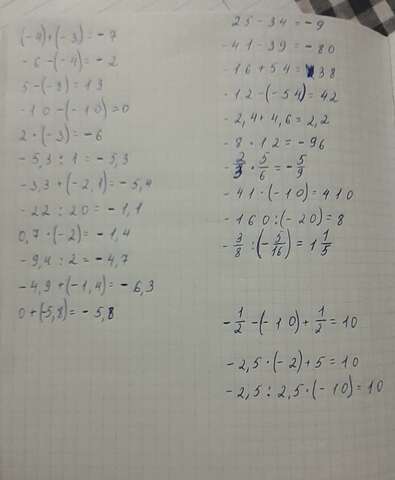 (-4)+(-3)=-7
-6-(-4)=-2
5-(-8)=13
-10-(-10)=0
2·(-3)=-6
-5,3:1=-5,3
-3,3+(-2,1)=-5,4
-22:20=-1,1
0,7·(-2)=-1,4
-9,4:2=-4,7
-4,9+(-1,4)=-6,3
0+(-5,8)=-5,8
25-34=-9
-41-39=-80
-16+54=38
-12-(-54)=42
-2,4+4,6=2,2
-8·12=-96
-2/3·5/6=-5/9
-41·(-10)=410
-160:(-20)=8
-3/8:(-5/16)=1 1/5
-1/2-(-10)+1/2=10
-2,5·(-2)+5=10
-2,5:2,5·(-10)=10